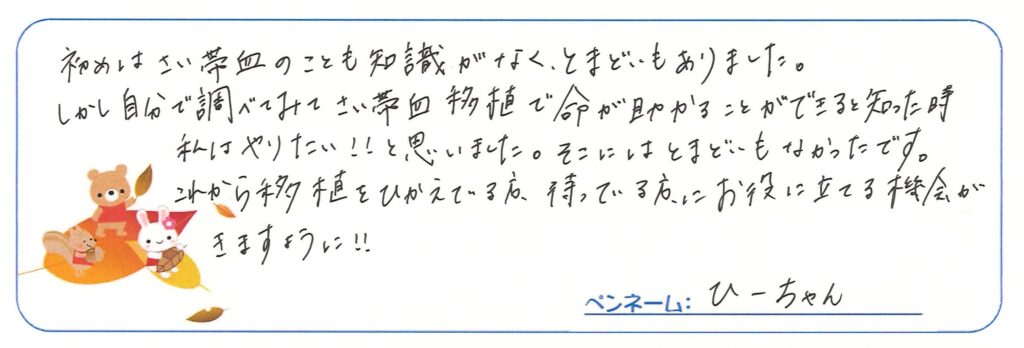 初めはさい帯血のことも知識がなく、とまどいもありました。
しかし自分で調べてみてさい帯血移植で命が助かることができると知った時
私はやりたい!!と思いました。そこにはとまどいもなかったです。
これから移植をひかえている方、待っている方、にお役に立てる機会が
きますように!!
ペンネーム: ひーちゃん